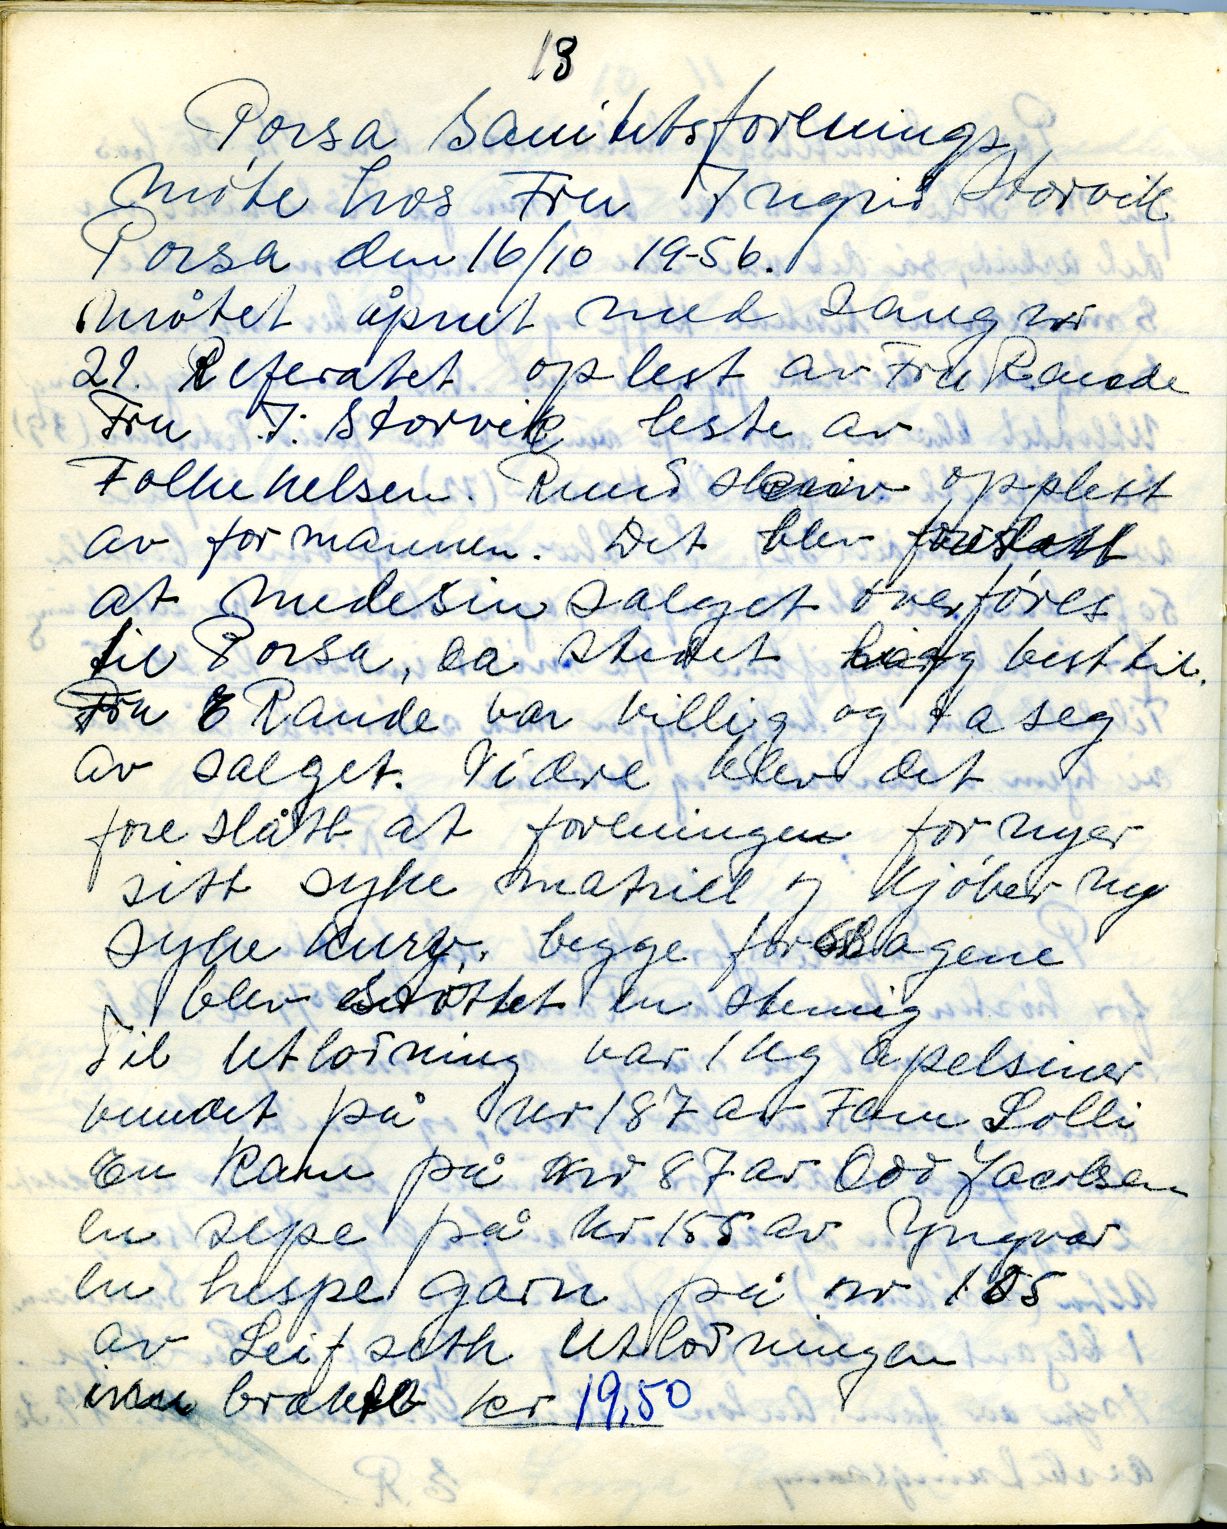 13
Porsa Sanitetsforenings
møte hos Fru Ingrid Storvik
Porsa den 16/10 19-56.
Møtet åpnet med sang nr
21. Referatet oplest av Fru Rande
Fru I. Storvik leste av
Folkehelsen. Rundskriv opplest
av formannen. Det blev foreslått
at medesin salget overføres
til Porsa, da stedet ligg best til.
Fru E Rande var villig og ta seg
av salget. Vidre blev det
fore slått at foreningen fornyer
sitt syke matriell og kjøber ny
syke kurv. begge forslagene
blev støttet en stemig
Til Utlodning var 1 kg apelsiner
vundet på nr 187 av Fam Lolli
En Kam på nr 87 av Odd Jacobsen
en sepe på nr 155 av Yngvar
en hespe garn på nr 105
av Leif seth Utlodningen
inn brakte kr 19,50